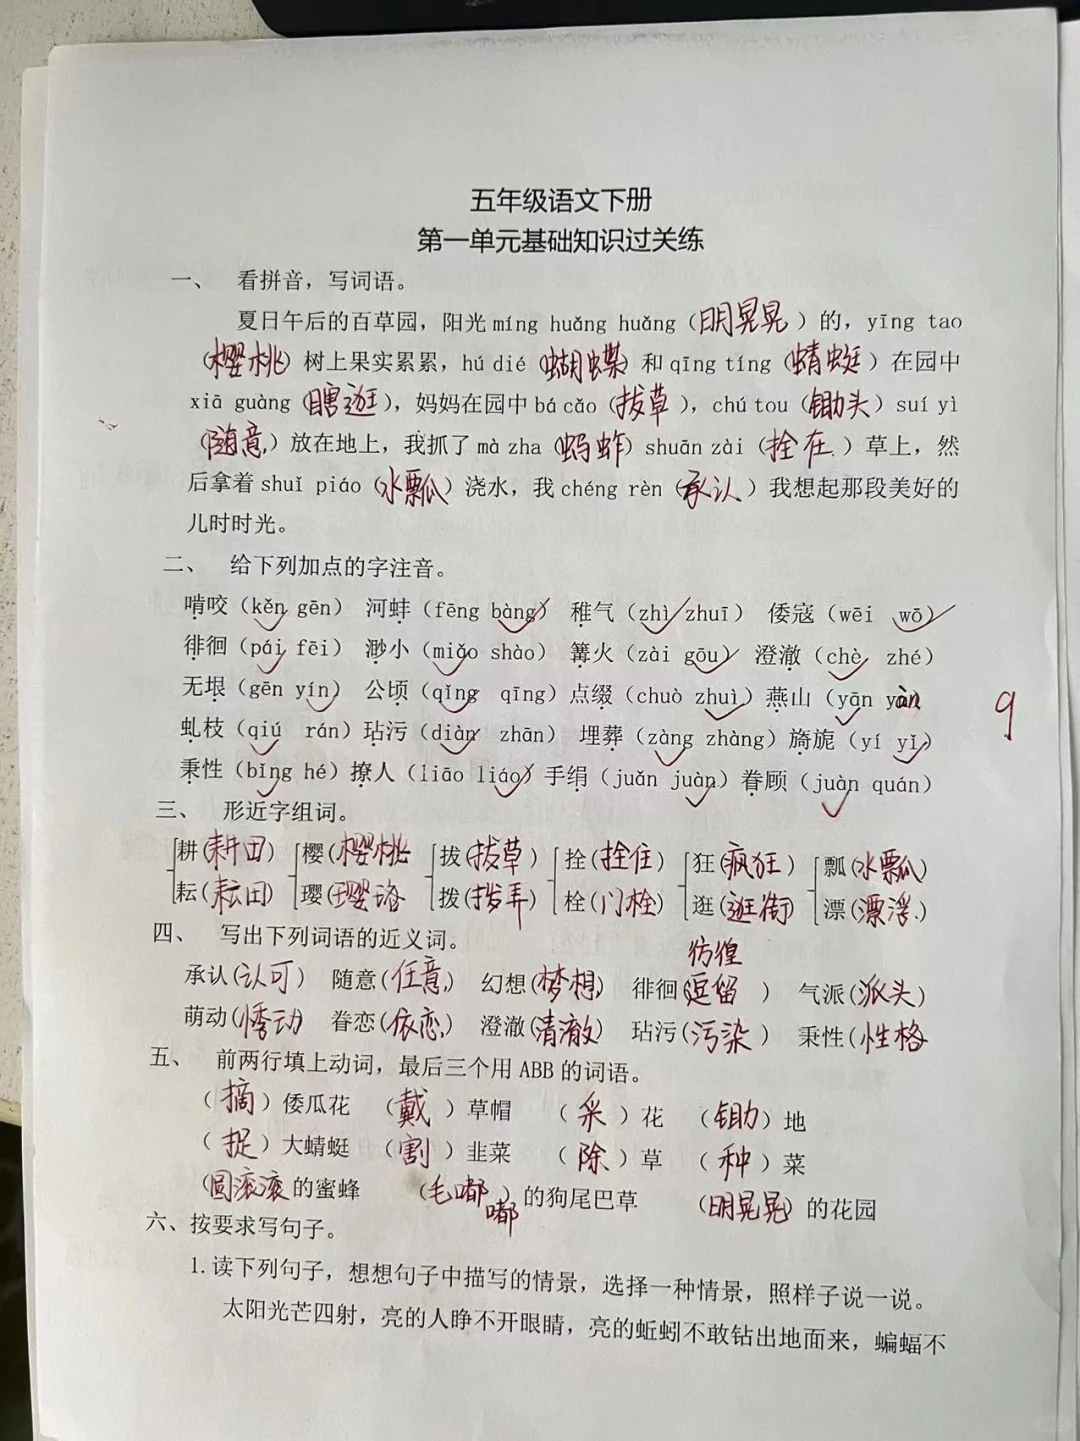 五年级语文下册
第一单元基础知识过关练
一、 看拼音，写词语。
夏日午后的百草园，阳光míng huǎng huǎng（明晃晃）的，yīng tao
（樱桃）树上果实累累，hú dié（蝴蝶）和qīng tíng（蜻蜓）在园中
xiā guàng（瞎逛），妈妈在园中bá cǎo（拔草），chú tou（锄头）suí yì
（随意）放在地上，我抓了mà zha（蚂蚱）shuān zài（拴在）草上，然
后拿着shuǐ piáo（水瓢）浇水，我chéng rèn（承认）我想起那段美好的
儿时时光。
二、 给下列加点的字注音。
啃咬（kěn gēn） 河蚌（fēng bàng） 稚气（zhì zhuī） 倭寇（wēi wō）
徘徊（pái fēi） 渺小（miǎo shào） 篝火（zài gōu） 澄澈（chè zhé）
无垠（gēn yín） 公顷（qǐng qīng）点缀（chuò zhuì）燕山（yān yàn
虬枝（qiú rán）玷污（diàn zhān） 埋葬（zàng zhàng）旖旎（yí yǐ）
秉性（bǐng hé）撩人（liāo liáo）手绢（juǎn juàn）眷顾（juàn quán）
9
三、 形近字组词。
耕（耕田） 樱（樱桃 拔（拔草） 拴（拴住） 狂（疯狂） 瓢（水瓢）
耘（耘田） 璎（璎珞 拨（拨弄 栓（门栓） 逛（逛街） 漂（漂浮）
四、 写出下列词语的近义词。
彷徨
承认（认可） 随意（任意） 幻想（梦想） 徘徊（逗留） 气派（派头）
萌动（悸动 眷恋（依恋） 澄澈（清澈） 玷污（污染） 秉性（性格
五、 前两行填上动词，最后三个用ABB的词语。
（摘）倭瓜花 （戴）草帽 （采）花 （锄）地
（捉）大蜻蜓 （割）韭菜 （除）草 （种）菜
（圆滚滚的蜜蜂 （毛嘟嘟）的狗尾巴草 （明晃晃）的花园
六、按要求写句子。
1.读下列句子，想想句子中描写的情景，选择一种情景，照样子说一说。
太阳光芒四射，亮的人睁不开眼睛，亮的蚯蚓不敢钻出地面来，蝙蝠不